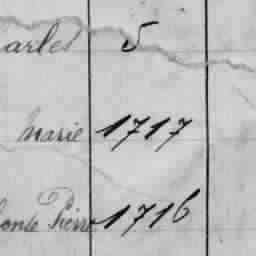 arles 5
Marie 1717
Pierre 1716